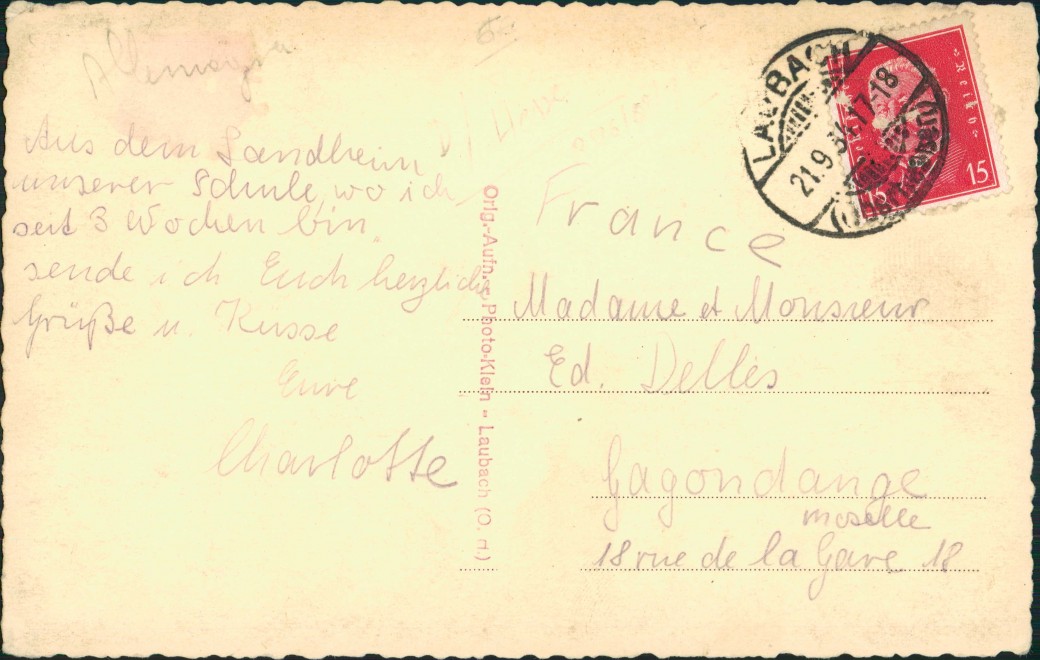 Aus dem Landheim
unserer Schule, wo ich
seit 3 Wochen bin,
sende ich Euch herzliche
Grüße u. Küsse
Eure
Charlotte
Orig.-Aufn. Photo-Klein - Laubach (O. H.)
LAUBACH
21.9.31.17-18
(OBERHESSEN)
15
15
France
Madame et Monsieur
Ed. Dellès
Gagondange
moselle
18 rue de la Gare 18